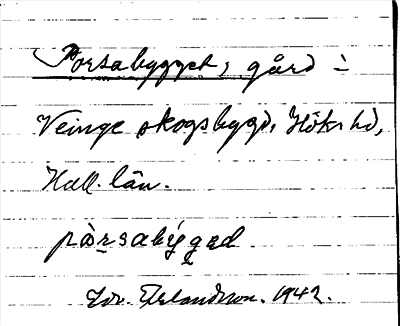 Porsabygget, gård i
Veinge skogsbygd, Höks hd,
Hall. län.
pòrsabýgəd.
Edv. Erlandsson. 1942.